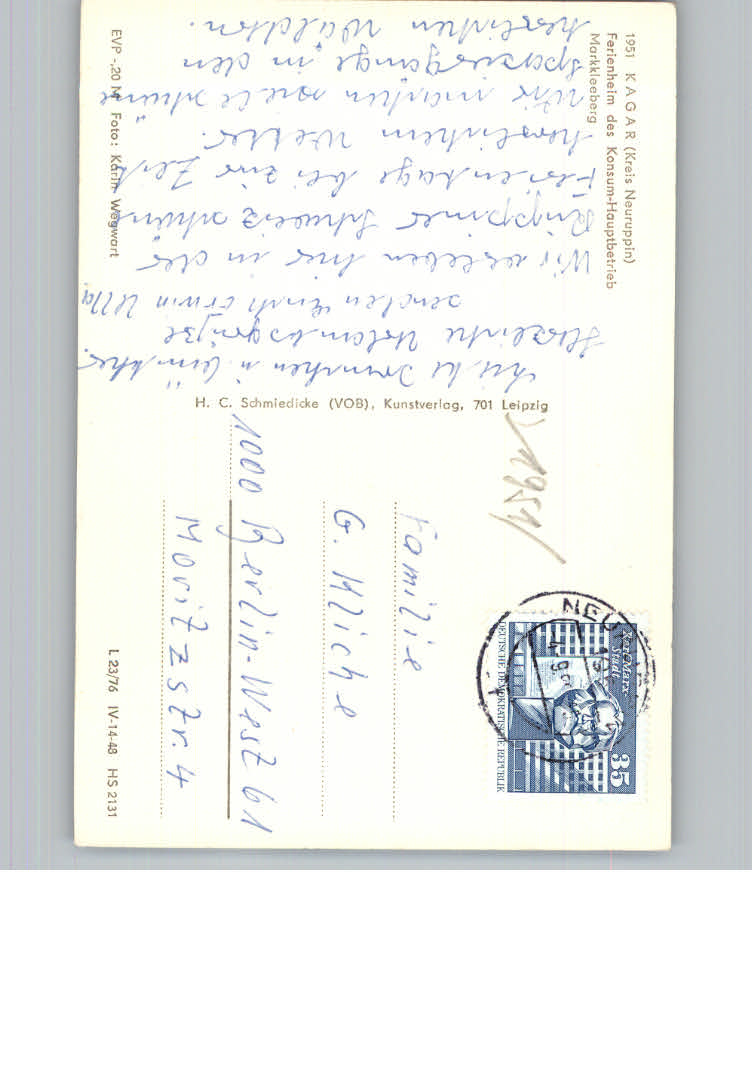 1951 KAGAR (Kreis Neuruppin)
Ferienheim des Konsum-Hauptbetrieb
Markkleeberg
EVP -,20 M Foto: Karin Wegwart
H. C. Schmiedicke (VOB), Kunstverlag, 701 Leipzig
L 23/76 IV-14-48 HS 2131
Herzliche Urlaubsgrüße
senden Euch Erwin Ulla
Wir erleben hier in der
Ruppiner Schweiz schöne
Ferientage bei zur Zeit
herrlichem Wetter.
Wir machen viele schöne
Spaziergänge in den
herrlichen Wäldern.
1951
Familie
G. Kliche
1000 Berlin-West 61
Moritzstr. 4
Karl-Marx-
Stadt
35
DEUTSCHE DEMOKRATISCHE REPUBLIK